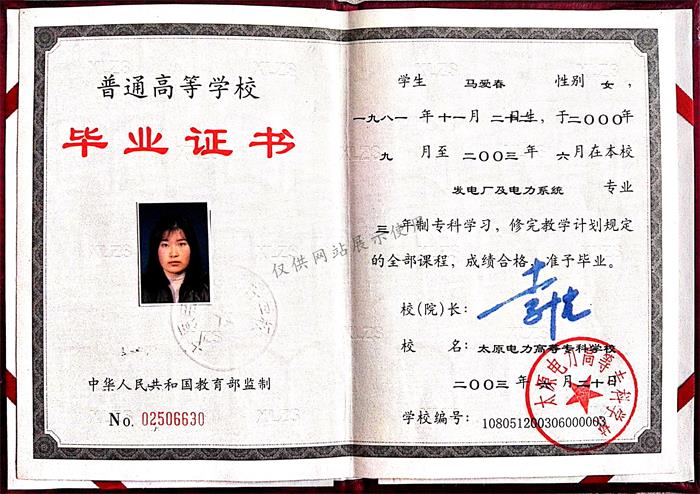 普通高等学校
毕业证书
中华人民共和国教育部监制
No. 02506630
学生 马爱春 性别 女，
一九八一年十一月二日生，于二〇〇〇年
九月至二〇〇三年六月在本校
发电厂及电力系统 专业
三年制专科学习，修完教学计划规定
的全部课程，成绩合格，准予毕业。
校(院)长：
校 名：太原电力高等专科学校
二〇〇三年 月二十日
学校编号：108051200306000003
仅供网站展示使用
太原电力高等专科学校